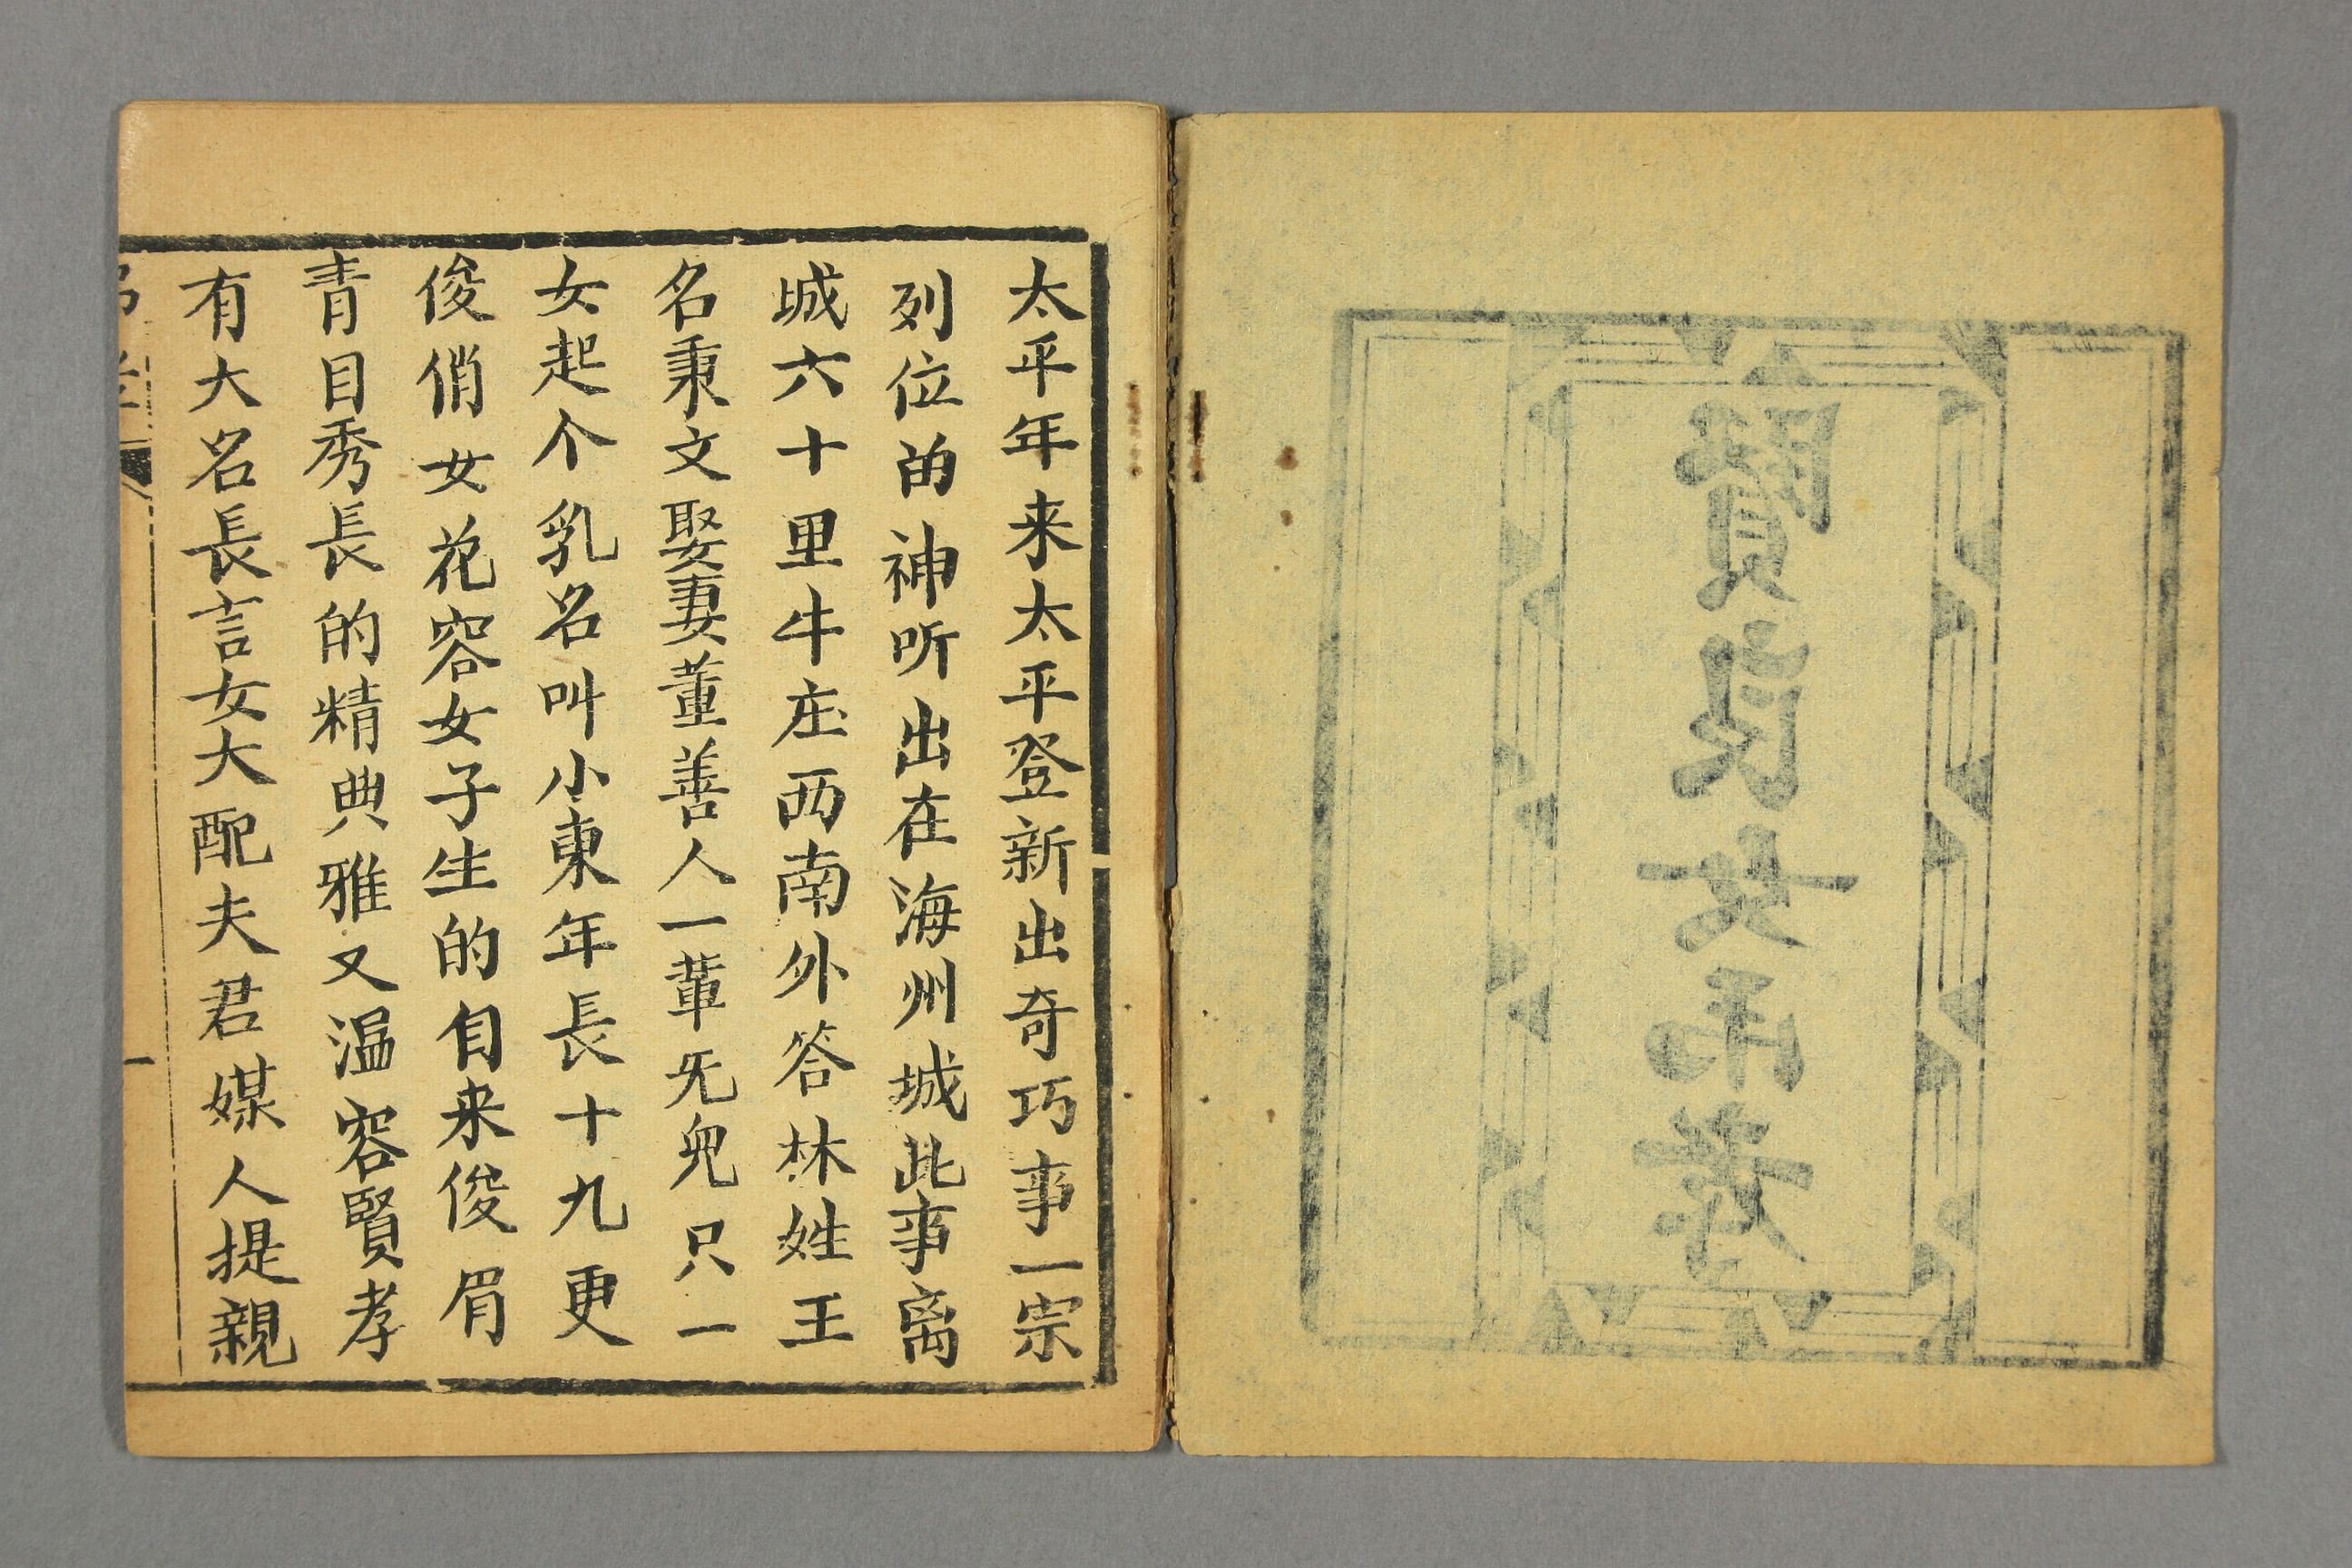 賢良女弔孝
太平年来太平登新出奇巧事一宗
列位的神听出在海州城此事离
城六十里牛庄西南外答林姓王
名秉文娶妻董善人一輩无兒只一
女起个乳名叫小東年長十九更
俊俏女花容女子生的自来俊眉
青目秀長的精典雅又温容賢孝
有大名長言女大配夫君媒人提親
一